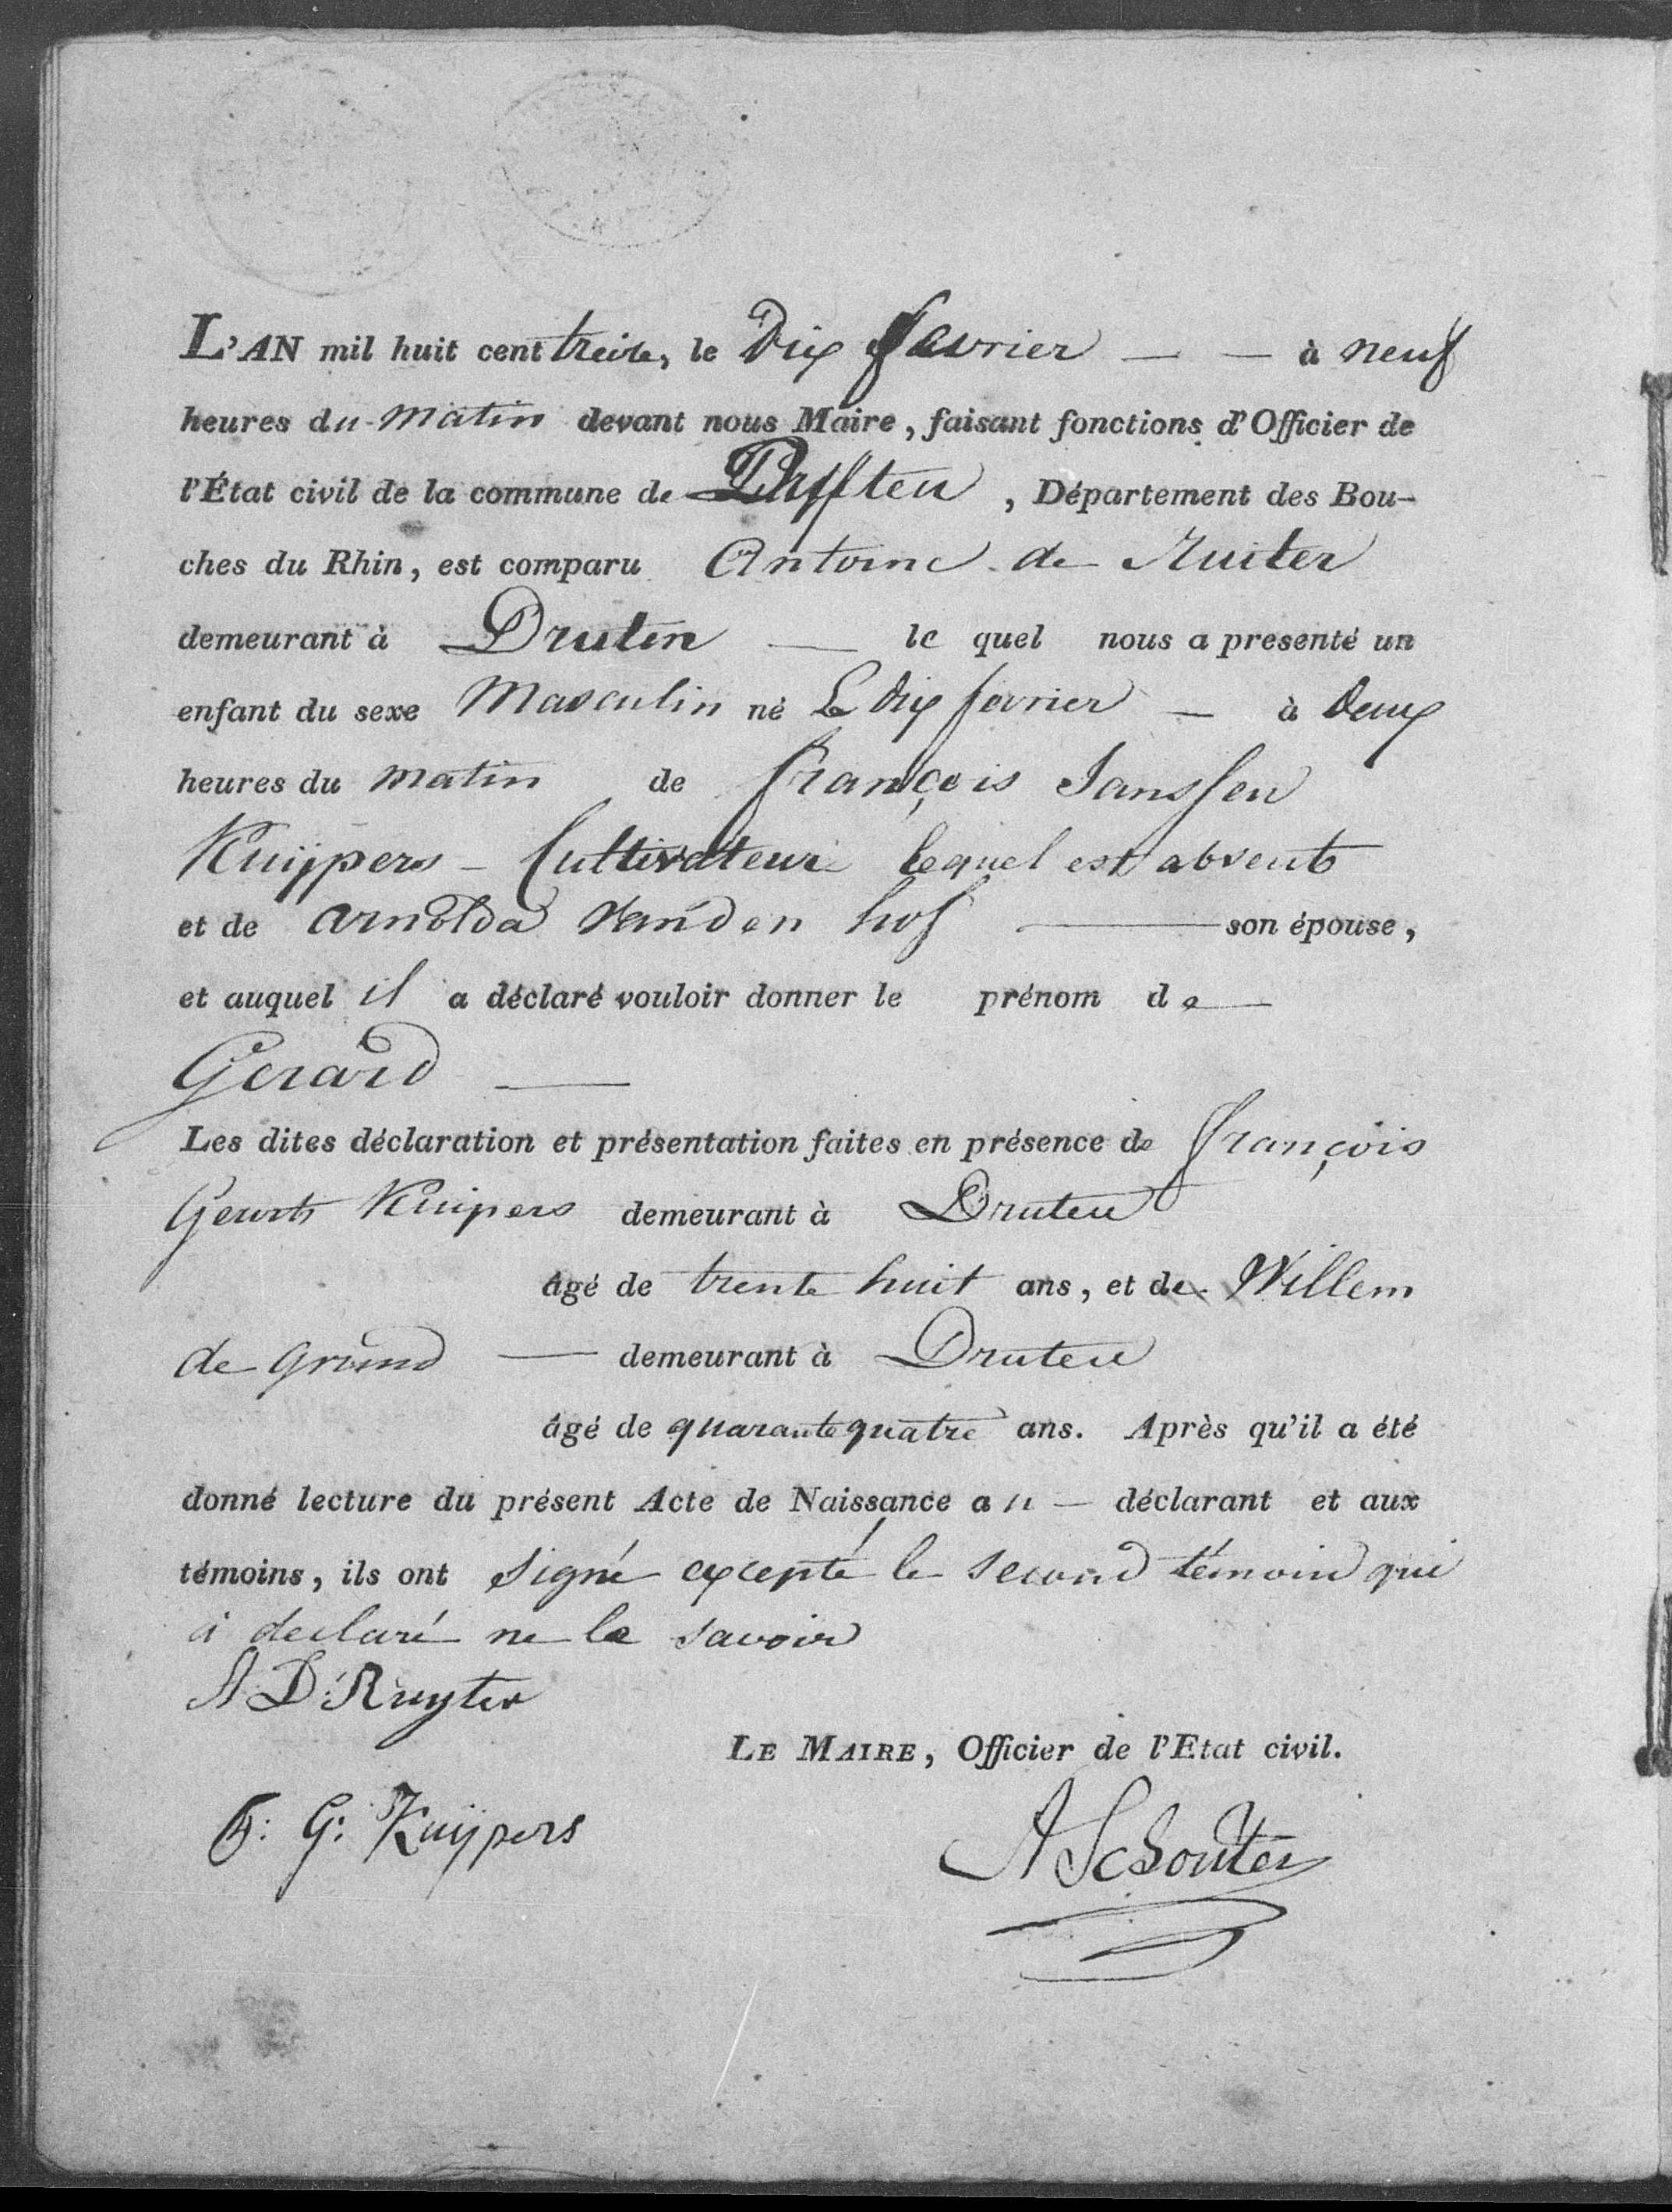 L'AN mil huit cent treize, le Dix fevrier — — à neuf
heures du matin devant nous Maire, faisant fonctions d'Officier de
l'État civil de la commune de Druten, Département des Bou-
ches du Rhin, est comparu Antoine de Ruiter
demeurant à Druten — le quel nous a presenté un
enfant du sexe Masculin né Le dix fevrier — à deux
heures du matin de françois Janssen
Kuijpers - Cultivateur lequel est absent
et de Arnolda van den hof — son épouse,
et auquel il a déclaré vouloir donner le prénom de —
Gerard —
Les dites déclaration et présentation faites en présence de françois
Geurts Kuipers demeurant à Druten
âgé de trente huit ans, et de Willem
de Grund — demeurant à Druten
âgé de quarante quatre ans. Après qu'il a été
donné lecture du présent Acte de Naissance au — déclarant et aux
témoins, ils ont signé excepté le second témoin qui
à declaré ne le savoir
A D: Ruyter
LE MAIRE, Officier de l'Etat civil.
F: G: Kuijpers
A Schouten